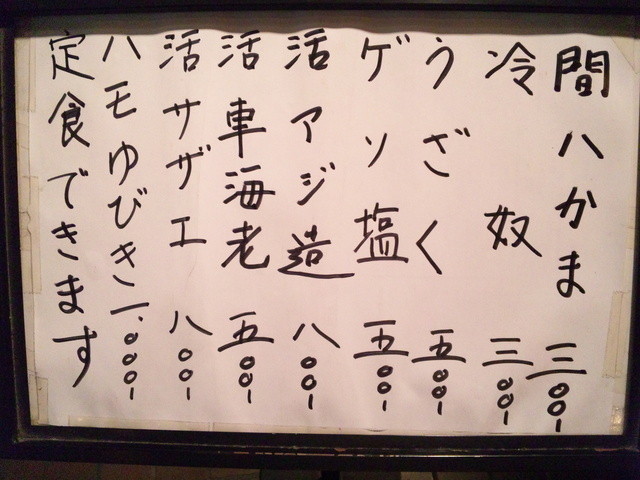 間八かま 三〇〇-
冷奴 三〇〇-
うざく 五〇〇-
ゲソ塩 五〇〇-
活アジ造 八〇〇-
活車海老 五〇〇-
活サザエ 八〇〇-
ハモゆびき 一.〇〇〇-
定食できます